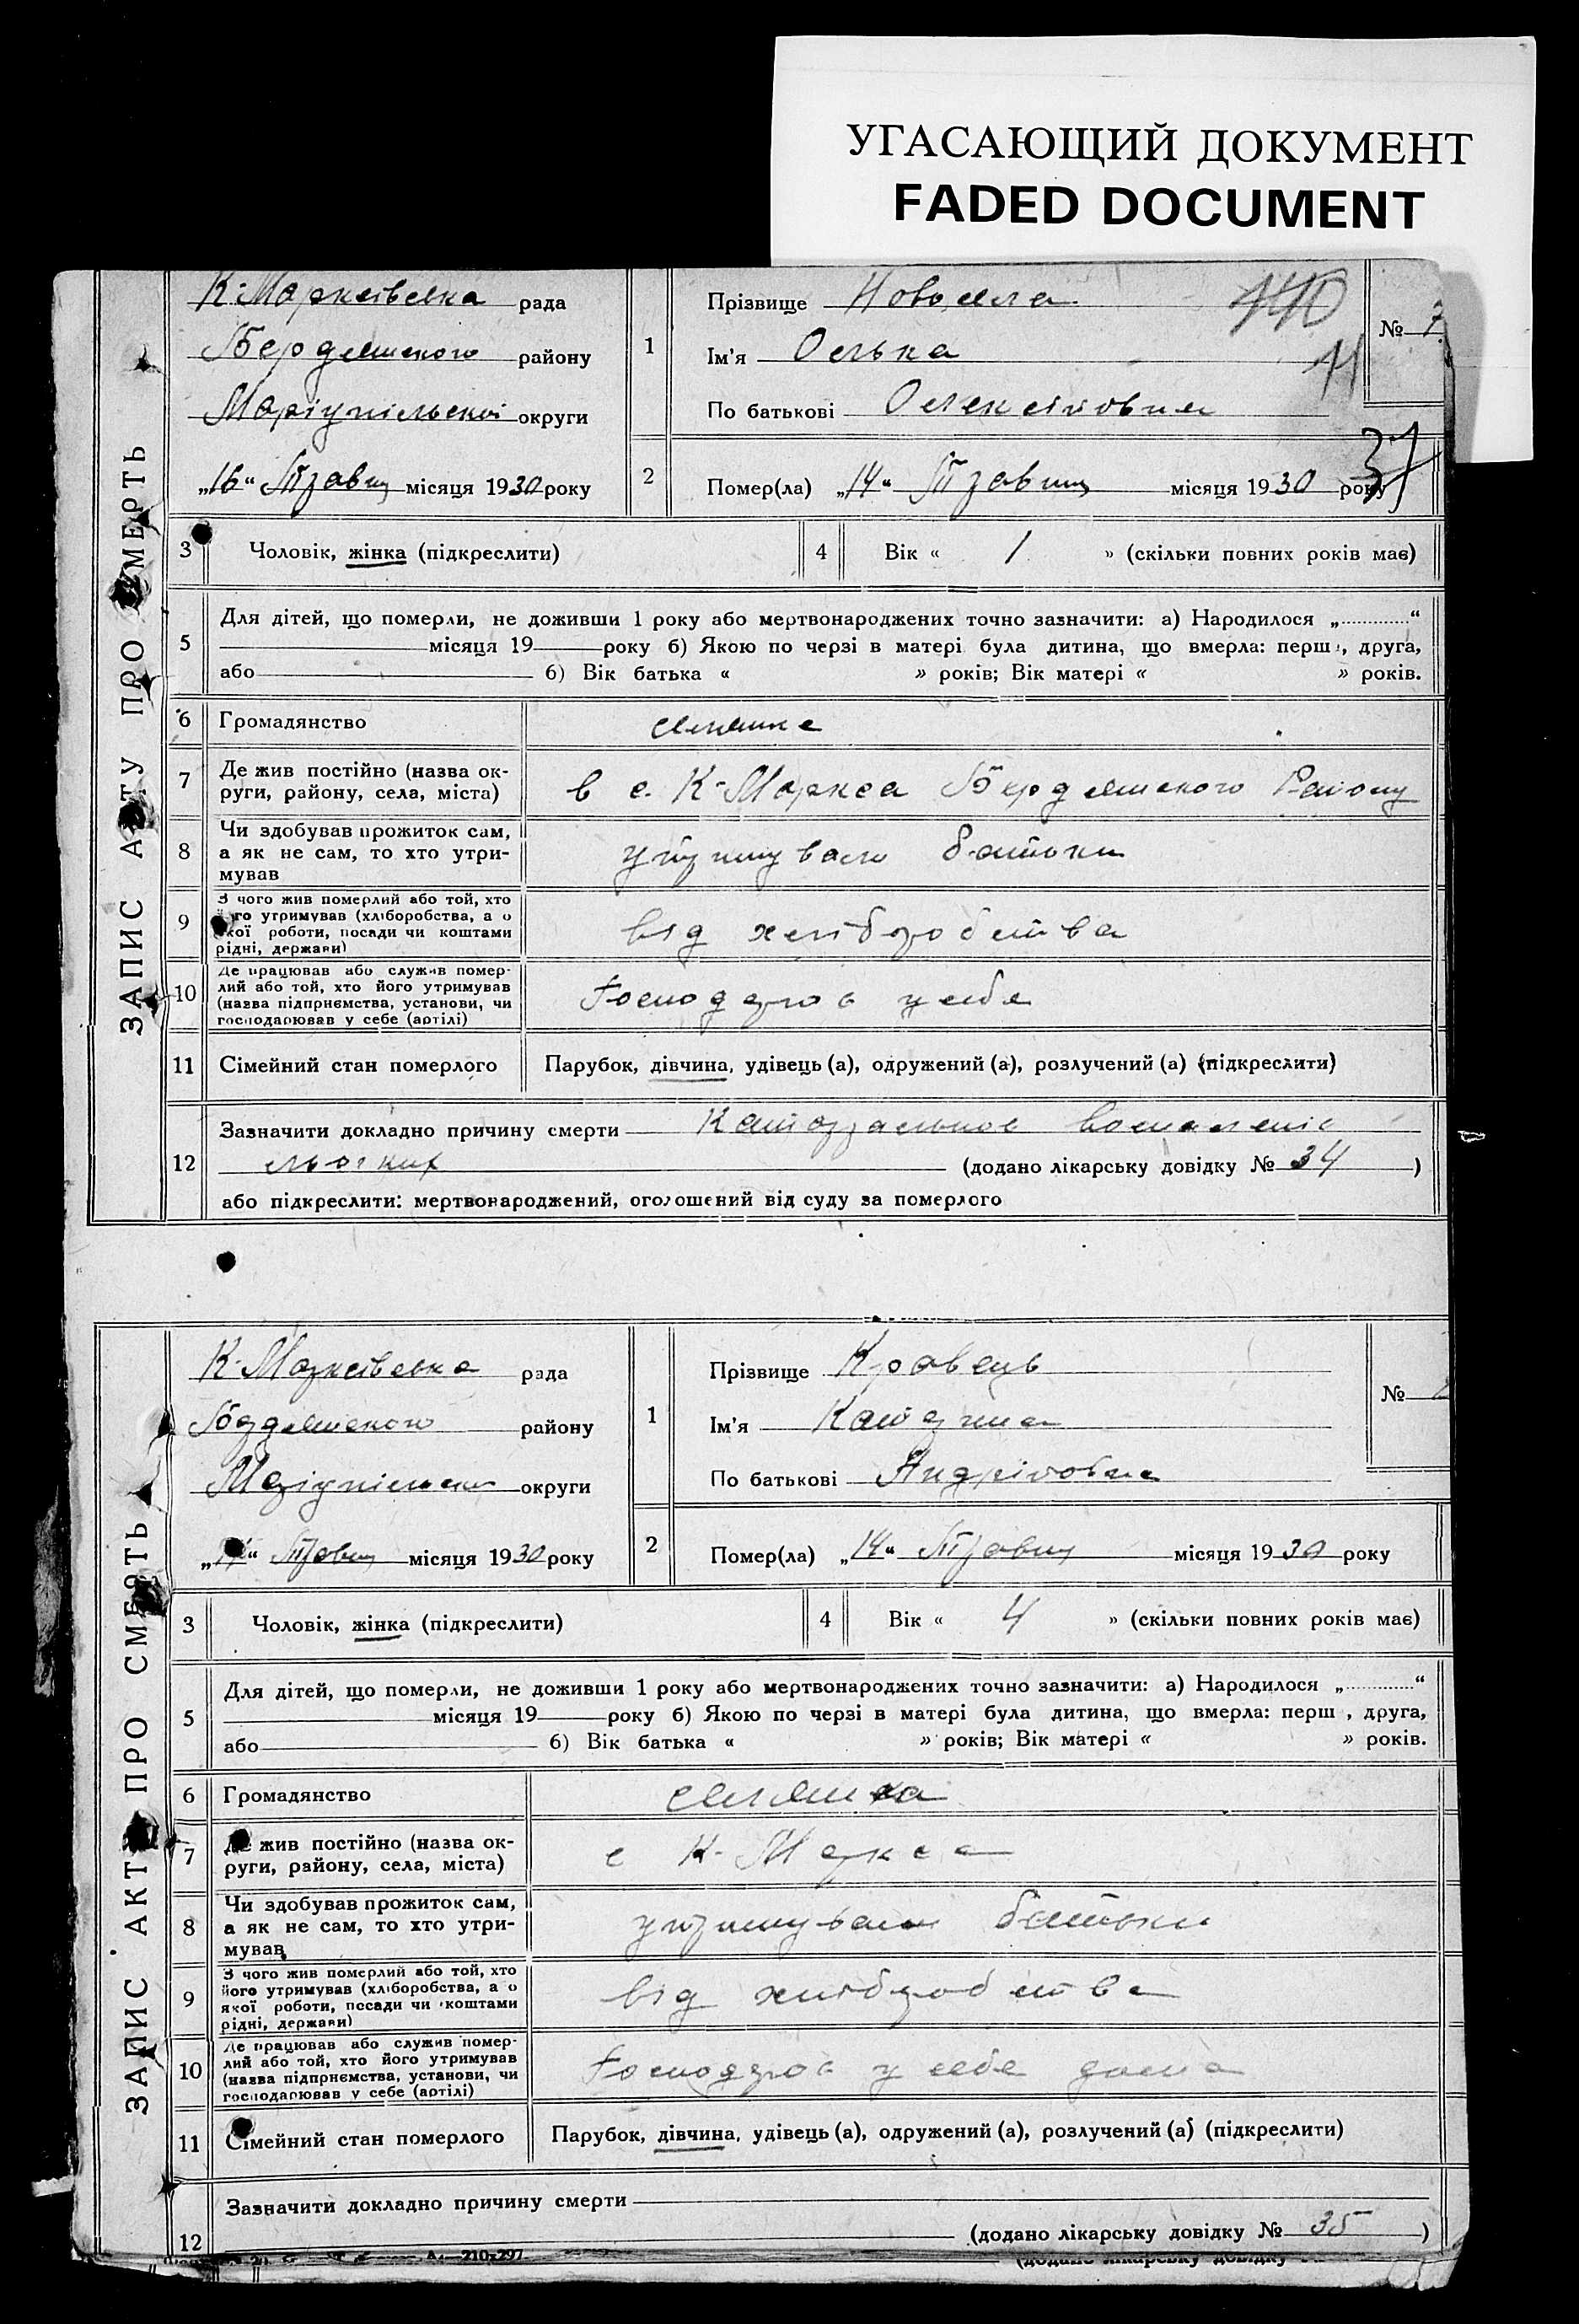 УГАСАЮЩИЙ ДОКУМЕНТ
FADED DOCUMENT
ЗАПИС АКТУ ПРО СМЕРТЬ
К-Марксівська рада
Бердянського району
Маріупільської округи
„16“ Травня місяця 1930 року
1
Прізвище
Ім'я Олька
По батькові Олексіївна
№ 7
140
37
2
Помер(ла) „14“ Травня місяця 1930 року
3 Чоловік, жінка (підкреслити)
4 Вік « 1 » (скільки повних років має)
5 Для дітей, що померли, не доживши 1 року або мертвонароджених точно зазначити: а) Народилося „ “
місяця 19 року б) Якою по черзі в матері була дитина, що вмерла: перш , друга,
або б) Вік батька « » років; Вік матері « » років.
6 Громадянство селянка
7 Де жив постійно (назва ок-
руги, району, села, міста)
в с. К-Маркса Бердянського Району
8 Чи здобував прожиток сам,
а як не сам, то хто утри-
мував
утримували батьки
9 З чого жив померлий або той, хто
його утримував (хліборобства, а о
якої роботи, посади чи коштами
рідні, держави)
від хліборобства
10 Де працював або служив помер-
лий або той, хто його утримував
(назва підприємства, установи, чи
господарював у себе (артілі)
Господарював у себе
11 Сімейний стан померлого
Парубок, дівчина, удівець (а), одружений (а), розлучений (а) (підкреслити)
12 Зазначити докладно причину смерти Катаральное воспаленіе
льогких (додано лікарську довідку № 34 )
або підкреслити: мертвонароджений, оголошений від суду за померлого
ЗАПИС АКТУ ПРО СМЕРТЬ
К-Марксівська рада
Бердянського району
Маріупільської округи
Травня місяця 1930 року
1
Прізвище Кравець
Ім'я Катерина
По батькові Андріївна
№
2
Помер(ла) „14“ Травня місяця 1930 року
3 Чоловік, жінка (підкреслити)
4 Вік « 4 » (скільки повних років має)
5 Для дітей, що померли, не доживши 1 року або мертвонароджених точно зазначити: а) Народилося „ “
місяця 19 року б) Якою по черзі в матері була дитина, що вмерла: перш , друга,
або б) Вік батька « » років; Вік матері « » років.
6 Громадянство селянка
7 Де жив постійно (назва ок-
руги, району, села, міста)
с К-Маркса
8 Чи здобував прожиток сам,
а як не сам, то хто утри-
мував
утримували батьки
9 З чого жив померлий або той, хто
його утримував (хліборобства, а о
якої роботи, посади чи коштами
рідні, держави)
від хліборобства
10 Де працював або служив помер-
лий або той, хто його утримував
(назва підприємства, установи, чи
господарював у себе (артілі)
Господарював у себе дома
11 Сімейний стан померлого
Парубок, дівчина, удівець (а), одружений (а), розлучений (а) (підкреслити)
12 Зазначити докладно причину смерти
(додано лікарську довідку № 35 )
А 210×297
(додано лікарську довідку